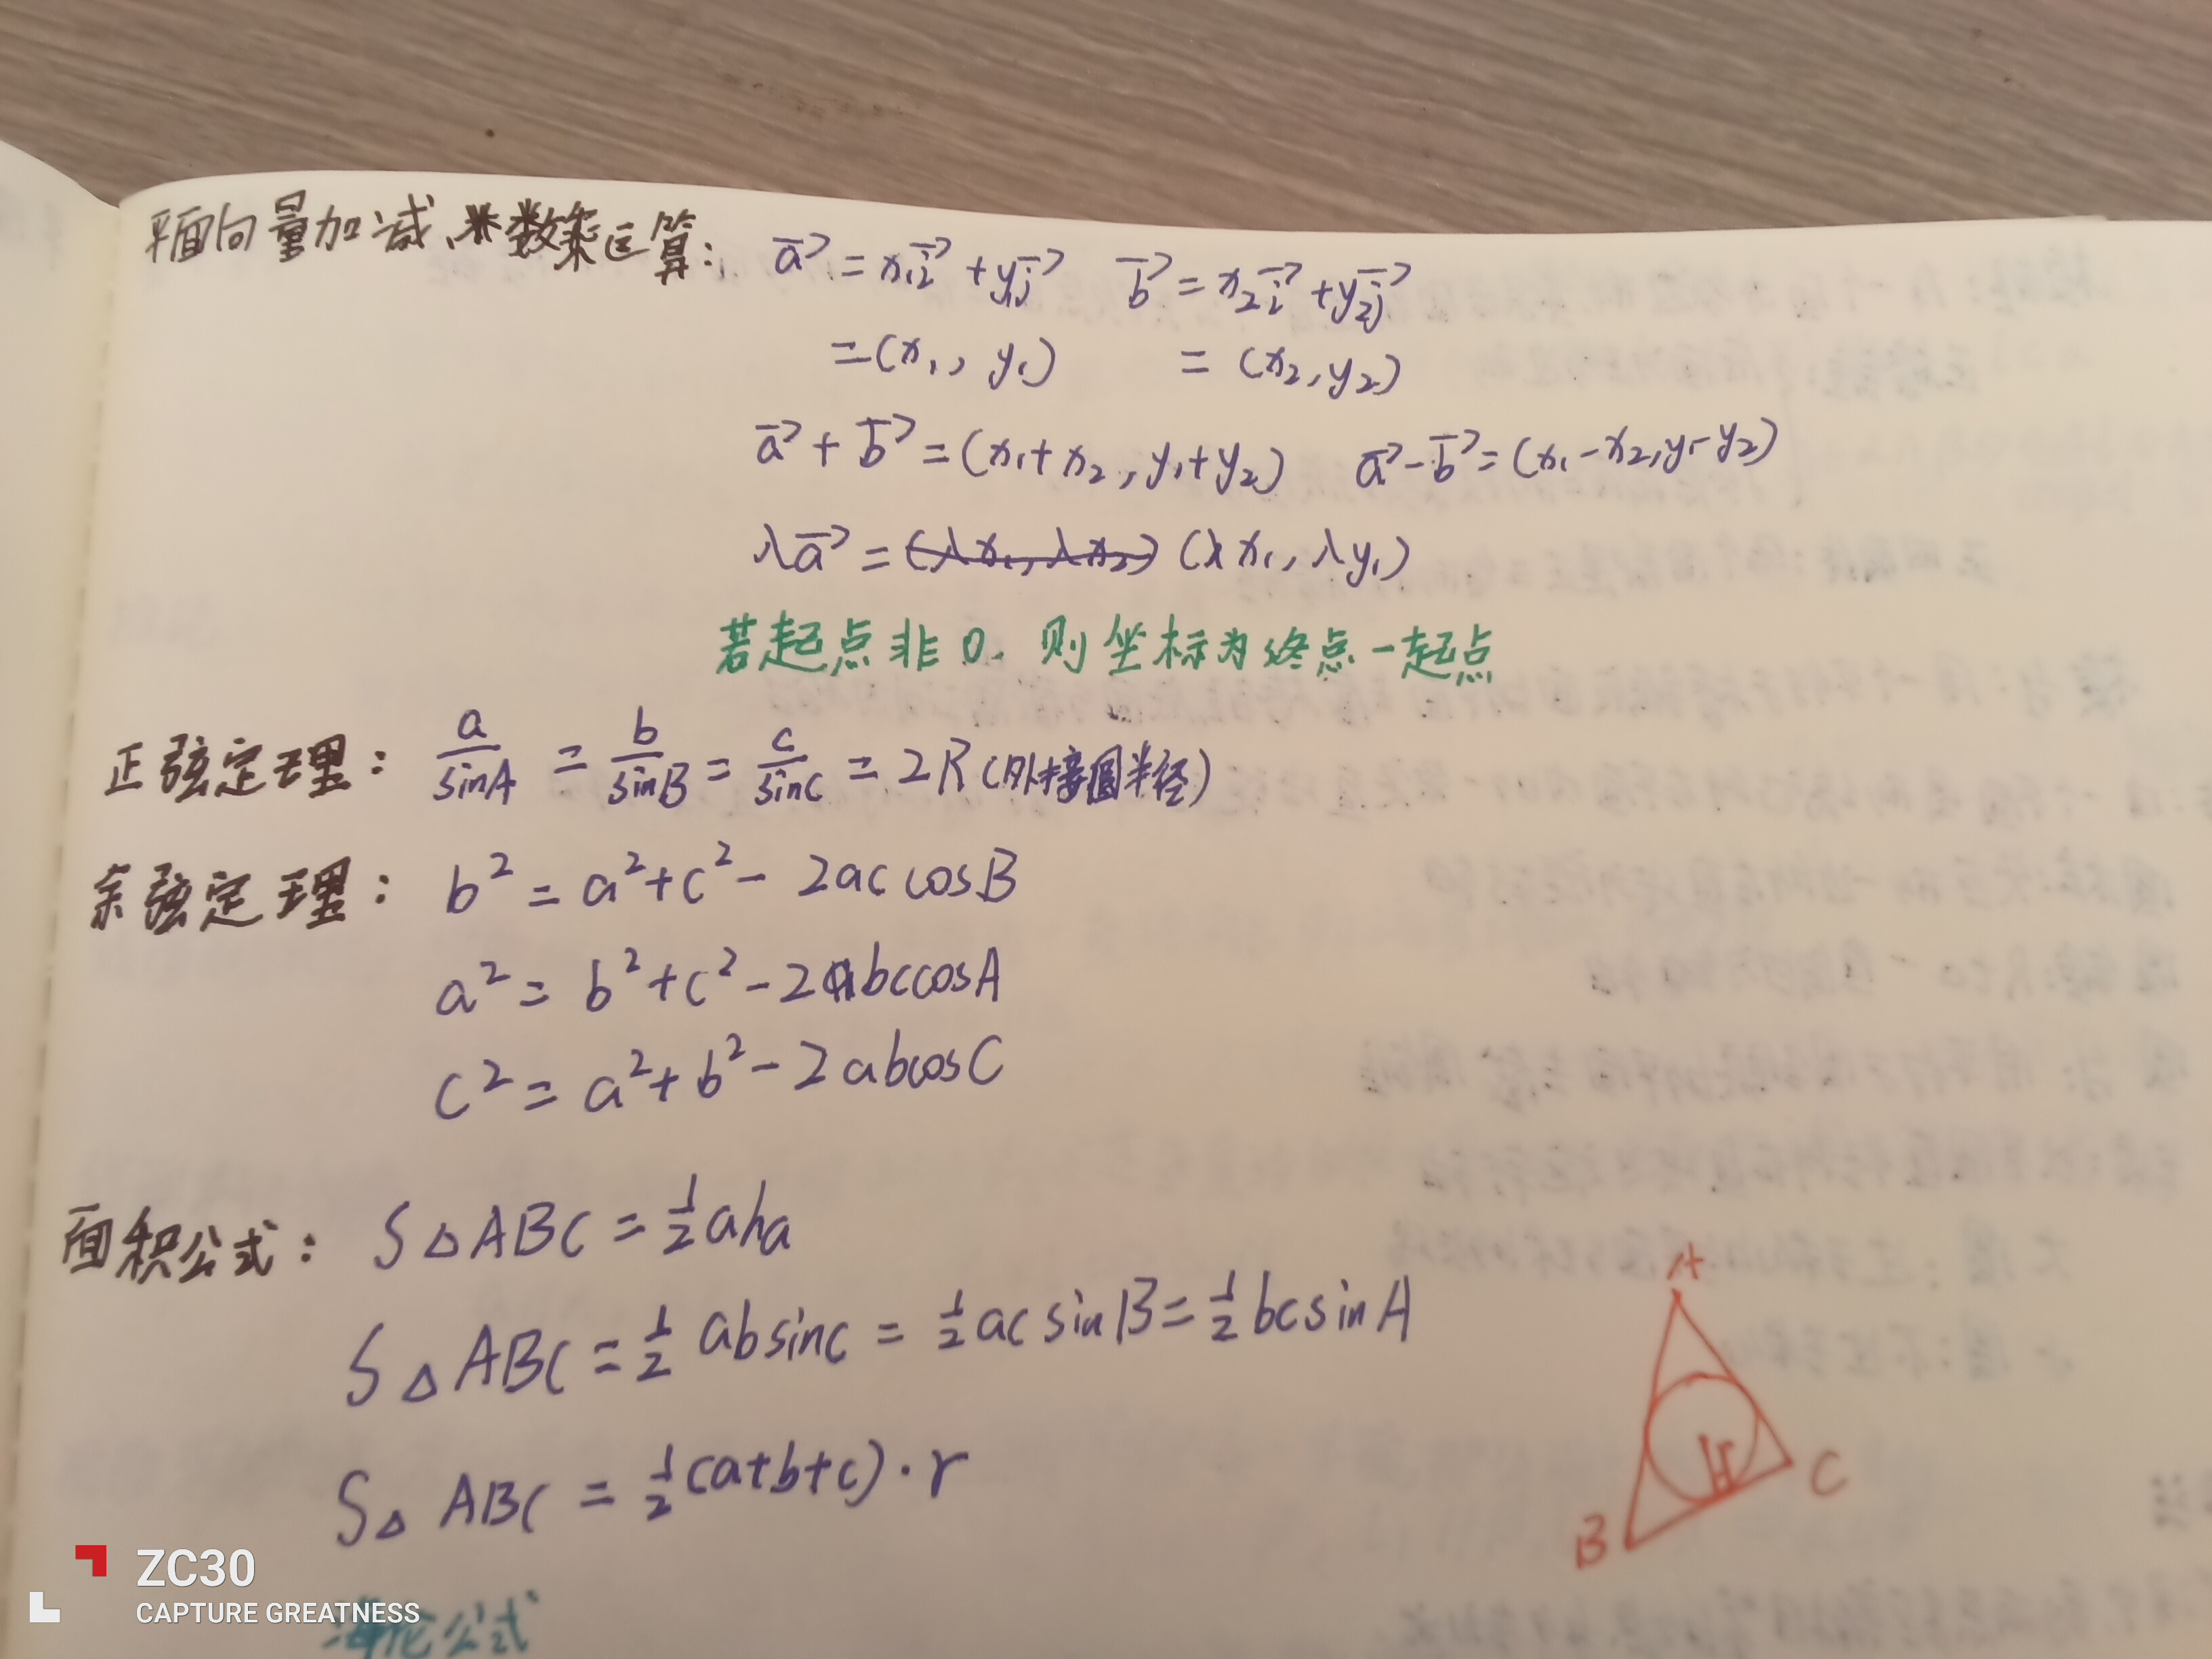 平面向量加减、数乘运算: a⃗ = x₁i⃗ + y₁j⃗  b⃗ = x₂i⃗ + y₂j⃗
=(x₁, y₁)  = (x₂, y₂)
a⃗ + b⃗ = (x₁+x₂, y₁+y₂)  a⃗ - b⃗ = (x₁-x₂, y₁-y₂)
λa⃗ = (λx₁, λx₂) (λx₁, λy₁)
若起点非0. 则坐标为终点-起点
正弦定理: a/sinA = b/sinB = c/sinC = 2R(外接圆半径)
余弦定理: b² = a²+c² - 2ac cosB
a² = b²+c² - 2bccosA
c² = a²+b² - 2abcosC
面积公式: S△ABC = ½aha
S△ABC = ½ absinC = ½ac sinB = ½bcsinA
S△ABC = ½(a+b+c)·r
A
C
B
海伦公式
ZC30
CAPTURE GREATNESS